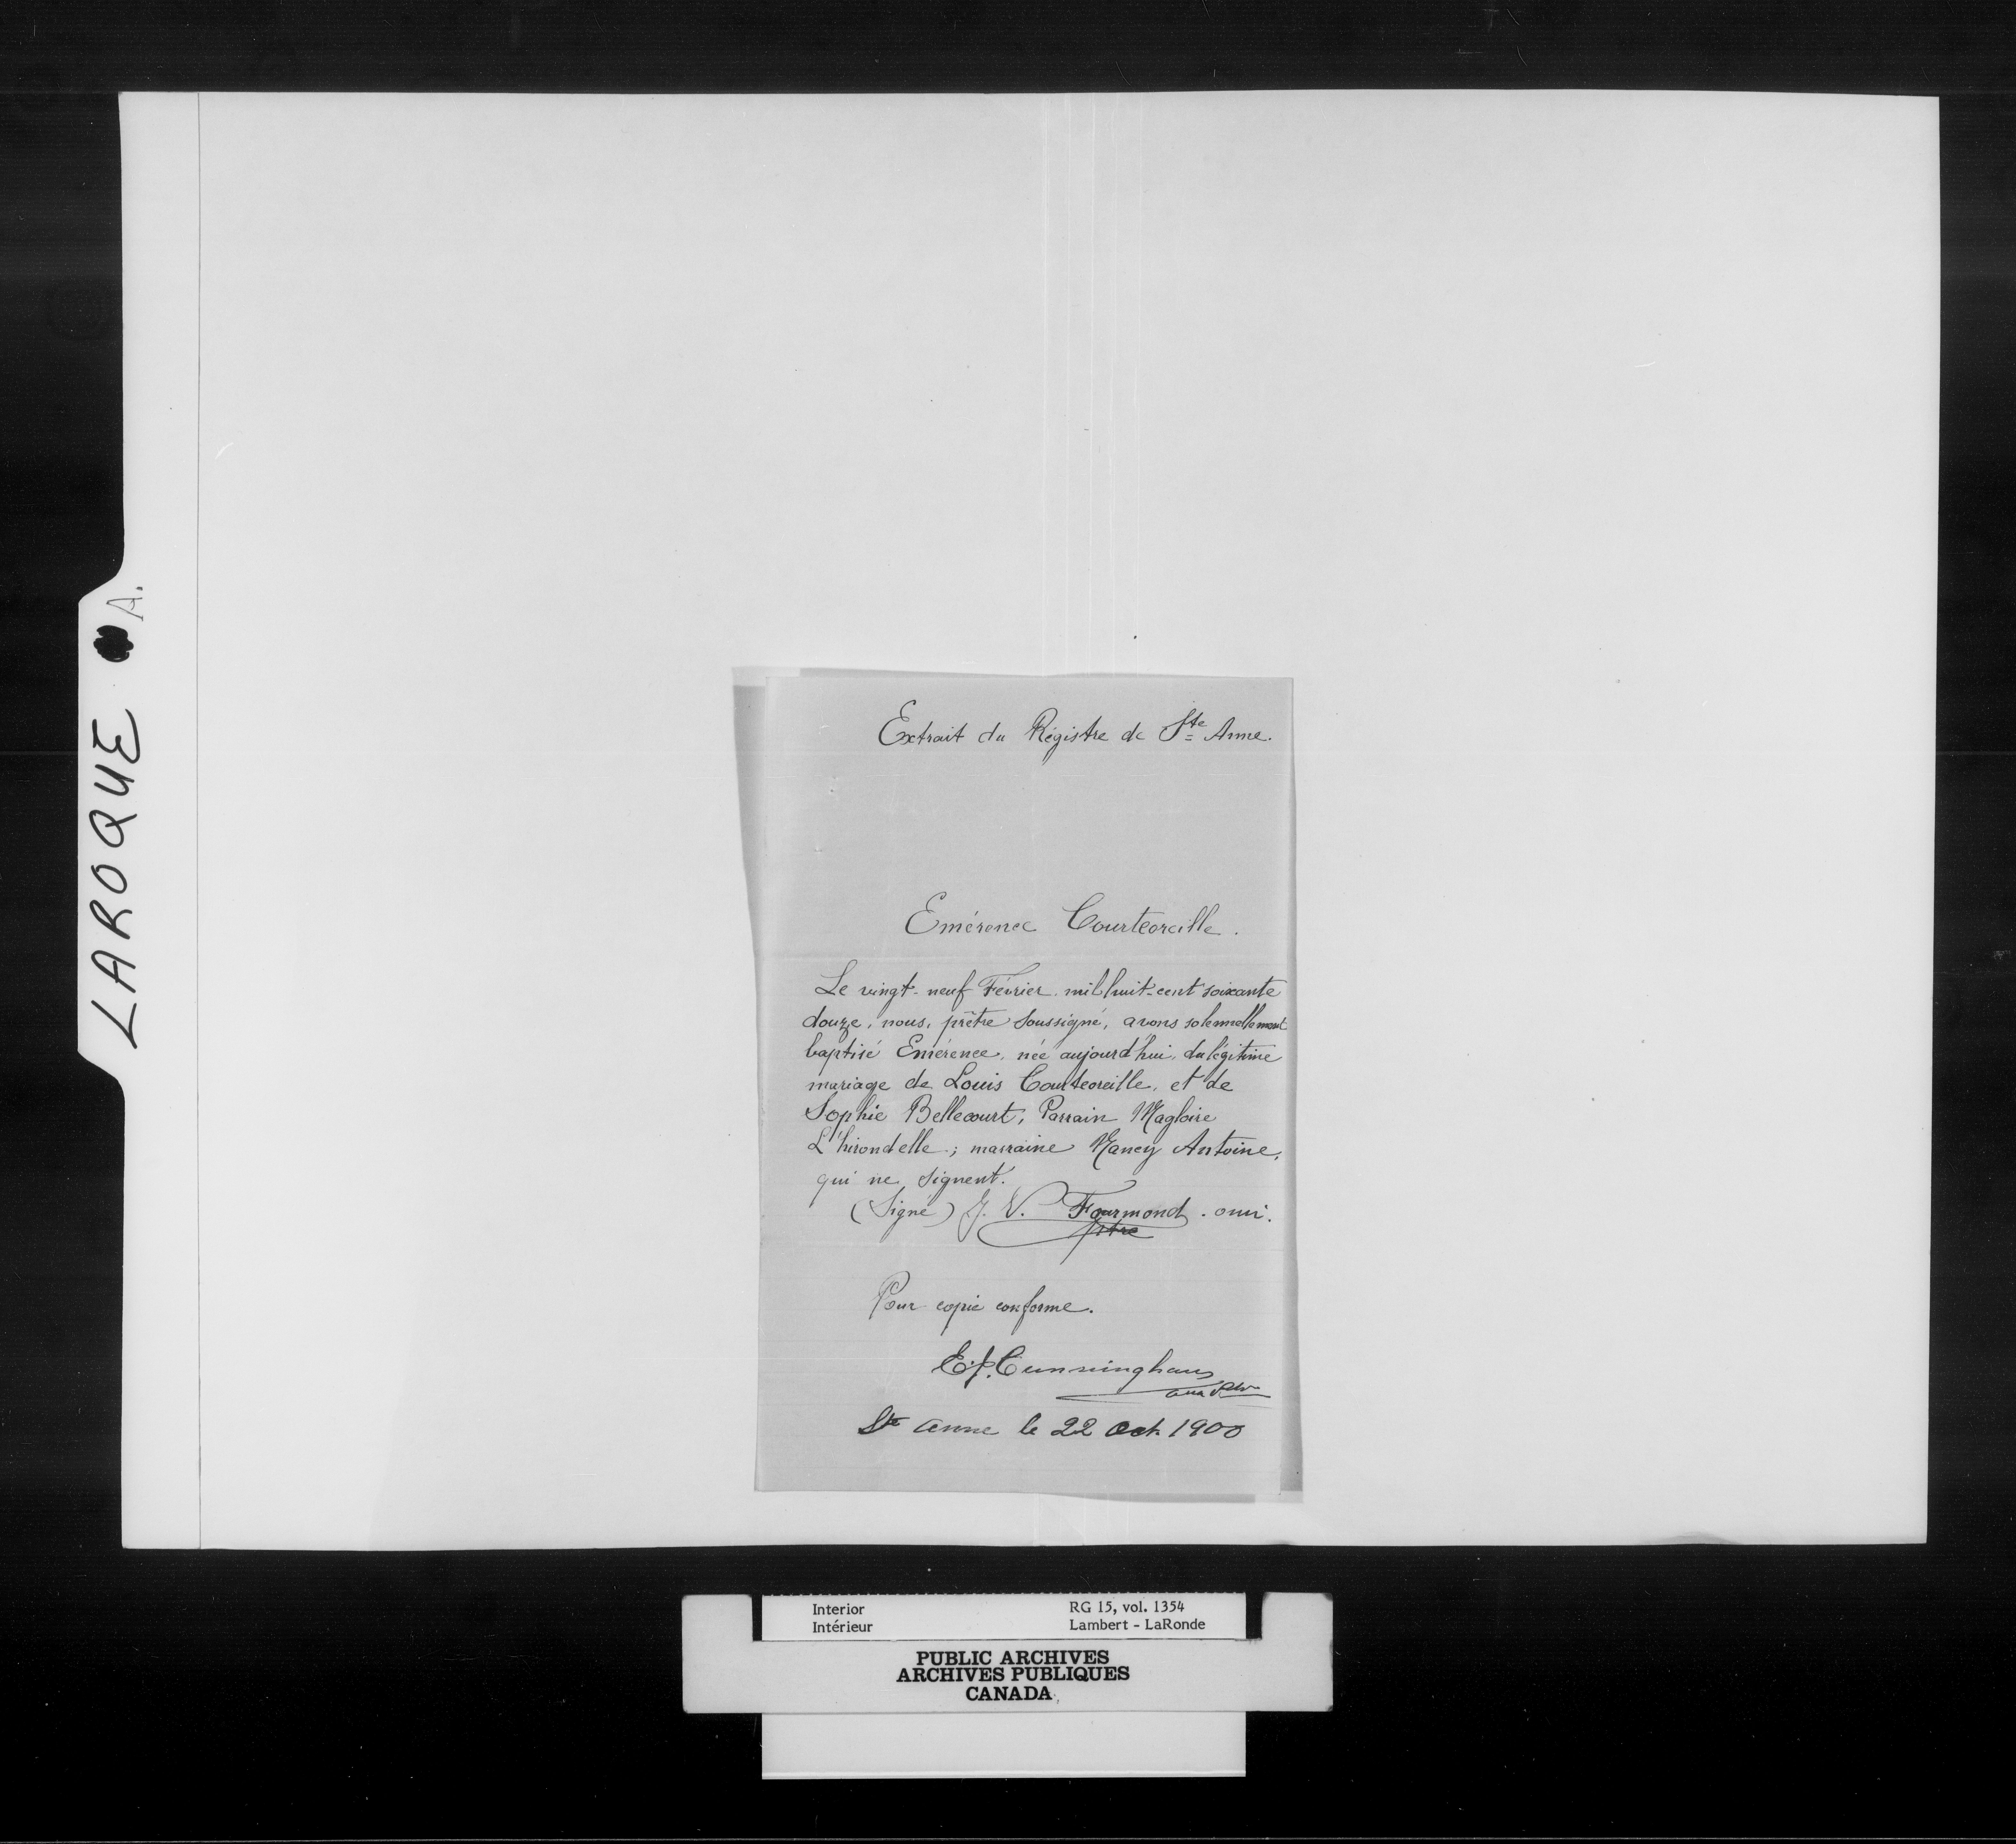 LAROQUE A.
Extrait du Régistre de Ste Anne.
Emérence Courteoreille.
Le vingt-neuf Février mil huit-cent soixante
douze, nous, prêtre soussigné, avons solennellement
baptisé Emérence, née aujourd'hui, du légitime
mariage de Louis Courteoreille, et de
Sophie Bellecourt, Parrain Magloire
L'hirondelle; marraine Nancy Antoine,
qui ne signent.
(Signé) J. V. Fourmond. omi.
ptre
Pour copie conforme.
E. J. Cunningham
Ste Anne le 22 Oct. 1900
Interior RG 15, vol. 1354
Intérieur Lambert - LaRonde
PUBLIC ARCHIVES
ARCHIVES PUBLIQUES
CANADA